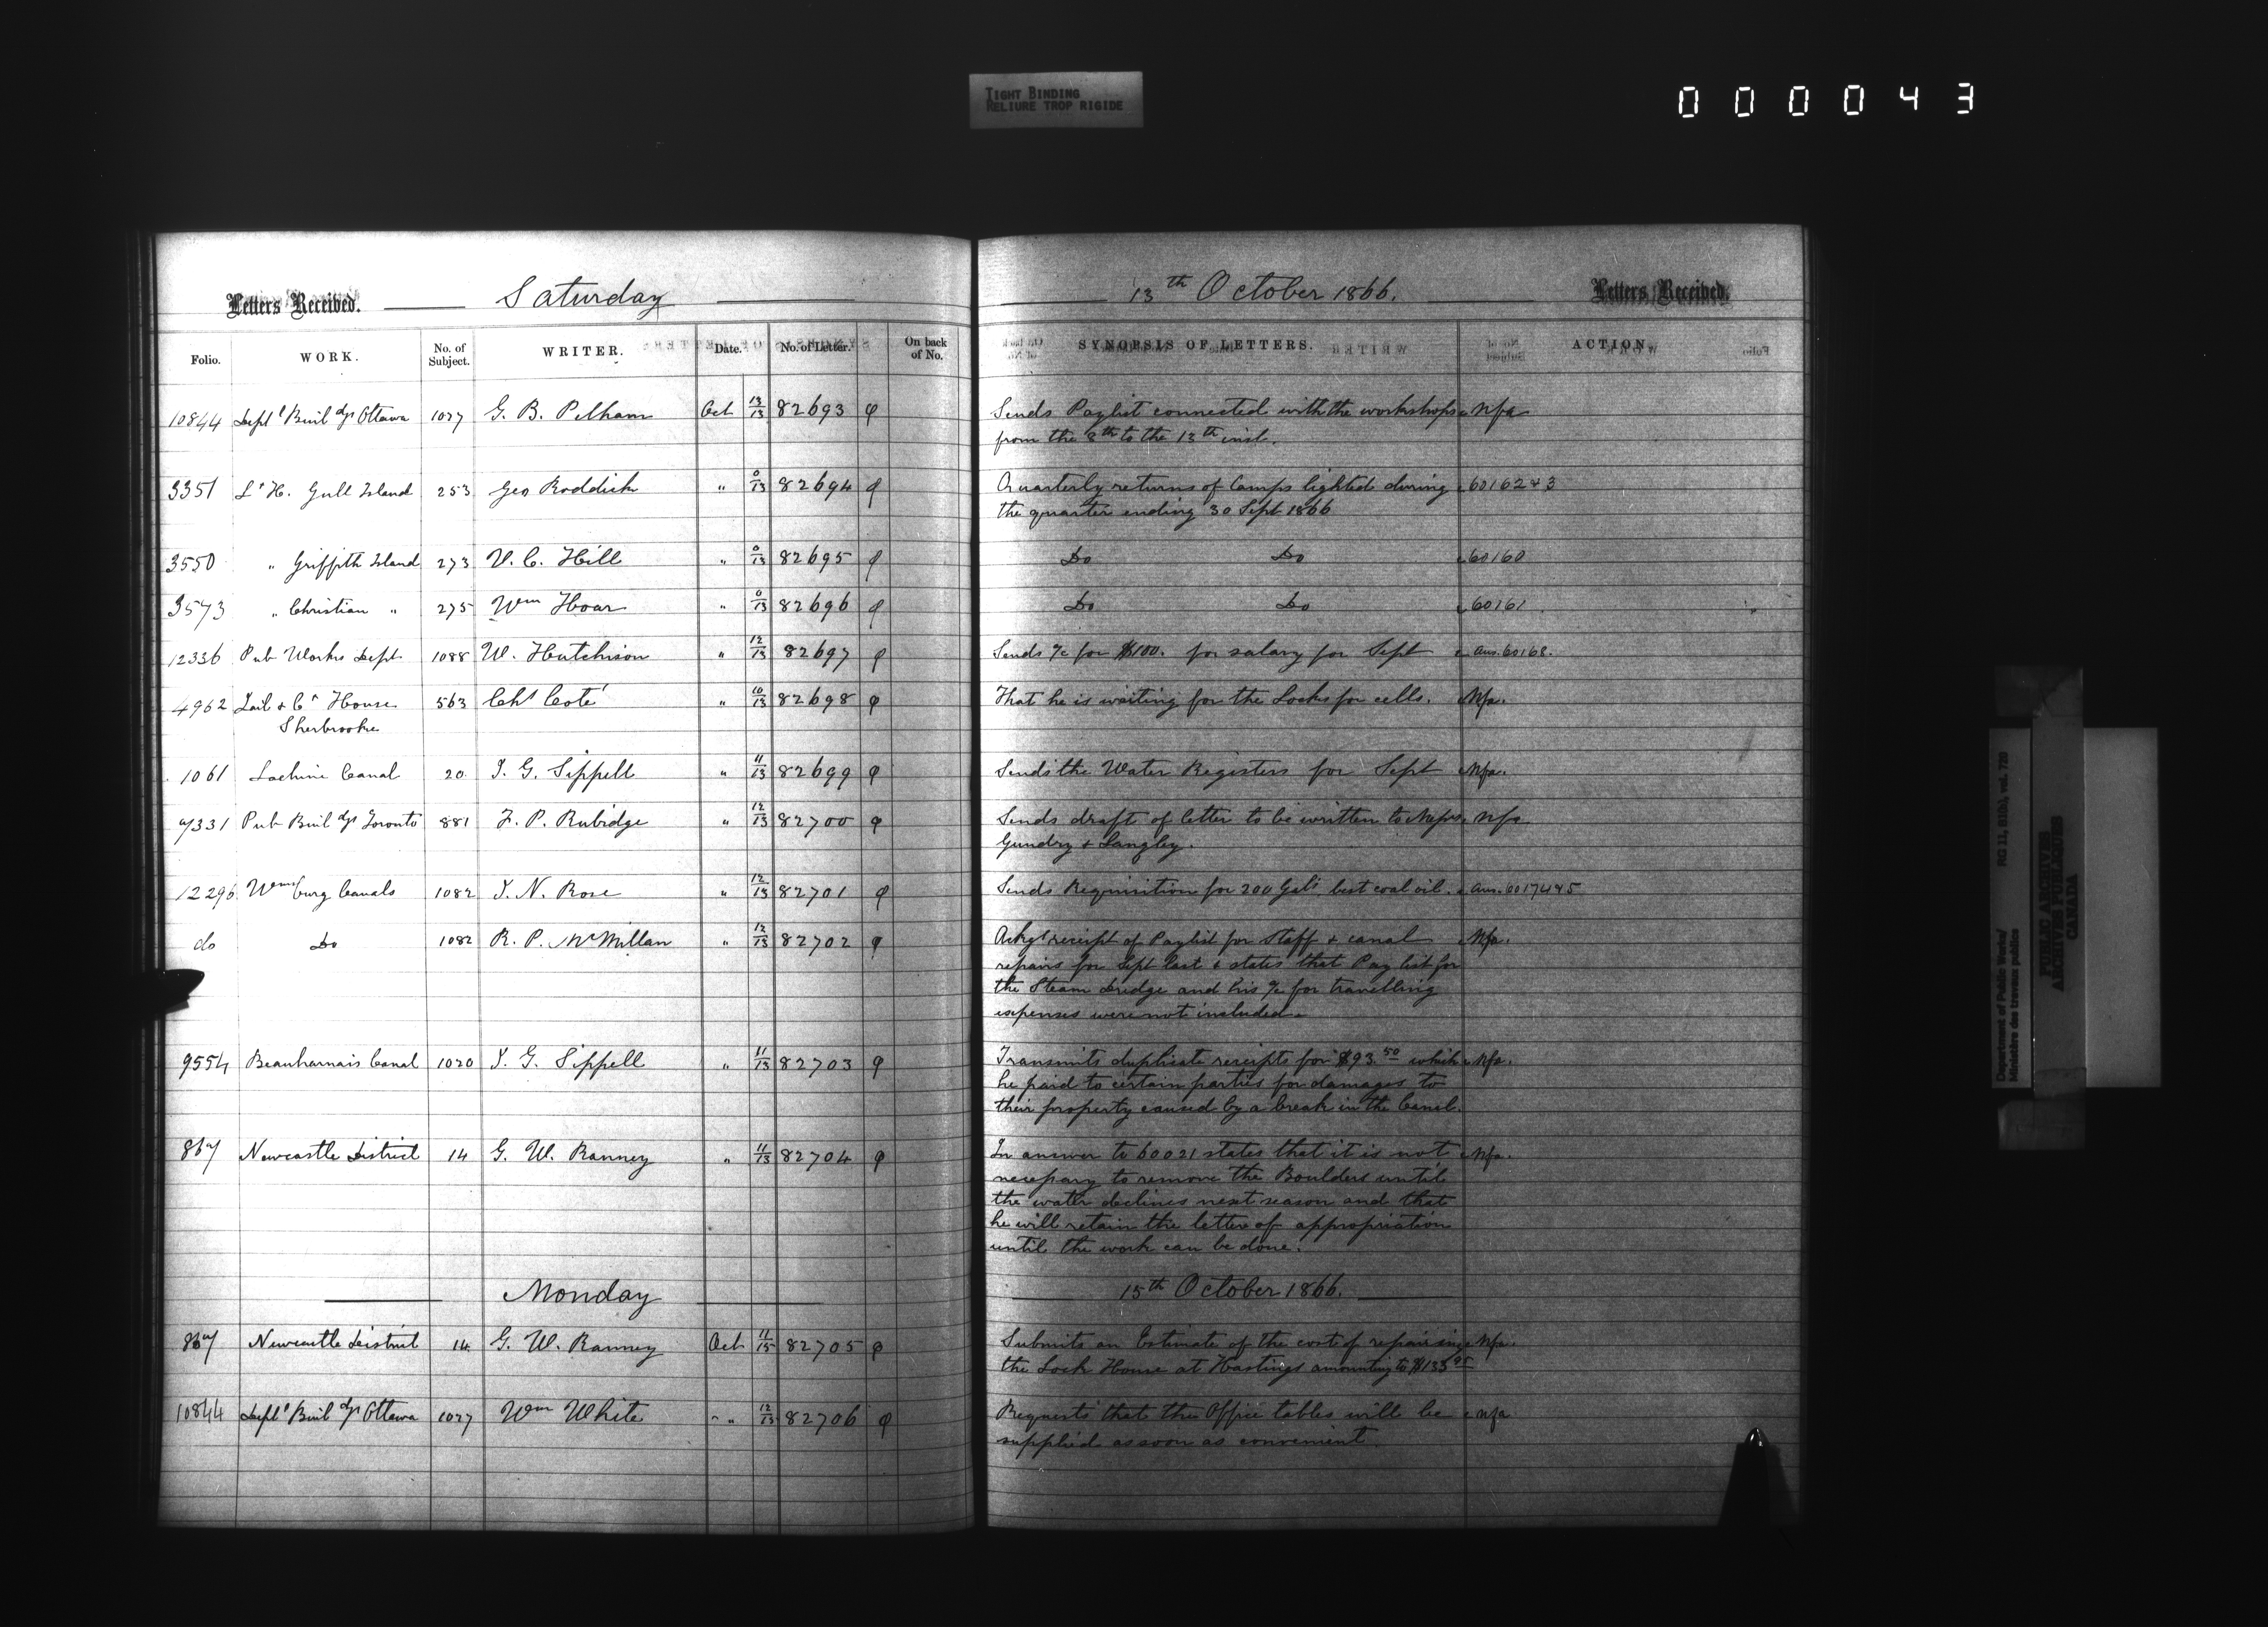 TIGHT BINDING
RELIURE TROP RIGIDE
000043
Letters Received. Saturday 13th October 1866. Letters Received.
Folio. WORK. No. of Subject. WRITER. Date. No. of Letter. On back of No. SYNOPSIS OF LETTERS. ACTION.
10844 Deptl Buildgs Ottawa 1027 G. B. Pelham Oct 13/13 82693 Sends Paylist connected with the workshops Nfa
from the 8th to the 13th inst.
3351 Lt H. Gull Island 253 Geo Roddick " 0/13 82694 Quarterly returns of Lamps lighted during 60162&3
the quarter ending 30 Sept 1866
3550 " Griffith Island 273 V. C. Hill " 0/13 82695 Do Do 60160
3573 " Christian " 275 Wm Hoar " 0/13 82696 Do Do 60161
12336 Pub Works Dept 1088 W. Hutchison " 12/13 82697 Sends a/c for $100. for salary for Sept Ans. 60168.
4962 Jail & Ct House 563 Chs Coté " 10/13 82698 That he is waiting for the Locks for cells. Nfa.
Sherbrooke
1061 Lachine Canal 20 J. G. Sippell " 11/13 82699 Sends the Water Registers for Sept Nfa.
9331 Pub Buildgs Toronto 881 F. P. Rubidge " 12/13 82700 Sends draft of letter to be written to Messrs Nfa
Gundry & Langley.
12296 Wmsburg Canals 1082 J. N. Rose " 12/13 82701 Sends Requisition for 200 Gals best coal oil. Ans. 60174&5
do Do 1082 R. P. McMillan " 12/13 82702 Ackgs receipt of Paylist for staff & canal Nfa.
repairs for Sept last & states that Pay list for
the Steam Dredge and his a/c for travelling
expenses were not included.
9554 Beauharnais Canal 1020 J. G. Sippell " 11/13 82703 Transmits duplicate receipts for $93.50 which Nfa.
he paid to certain parties for damages to
their property caused by a break in the Canal.
867 Newcastle District 14 G. W. Ranney " 11/13 82704 In answer to 60021 states that it is not Nfa.
necessary to remove the Boulders until
the water declines next season and that
he will retain the letter of appropriation
until the work can be done.
Monday 15th October 1866.
867 Newcastle District 14 G. W. Ranney Oct 11/15 82705 Submits an Estimate of the cost of repairing Nfa.
the Lock House at Hastings amounting to $133
10844 Deptl Buildgs Ottawa 1027 Wm White " 12/13 82706 Requests that the Office tables will be nfa
supplied as soon as convenient.
Department of Public Works/ RG 11, B1(b), vol. 720
Ministère des travaux publics
PUBLIC ARCHIVES
ARCHIVES PUBLIQUES
CANADA